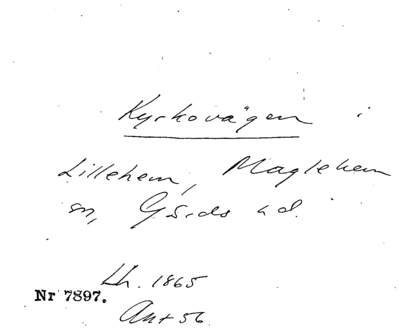 Kyrkovägen i
Lillehem, Maglehem
sn, Gärds hd.
Lh. 1865
Nr 7897.
Ant 56